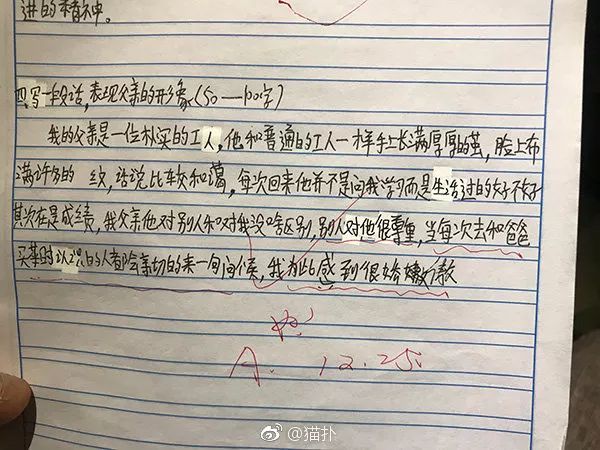 进的精神。
四.写一段话,表现父亲的形象(50—100字)
我的父亲是一位朴实的工人,他和普通的工人一样手上长满厚厚的茧,脸上布
满许多的 纹,话说比较和蔼,每次回来他并不是问我学习而是生活过的好不好
其次在是成绩,我父亲他对别人和对我没啥区别,别人对他很尊重,当每次去和爸爸
买菜时 的人都会亲切的来一句问候,我为此感到很骄傲
A. 12.25
@猫扑